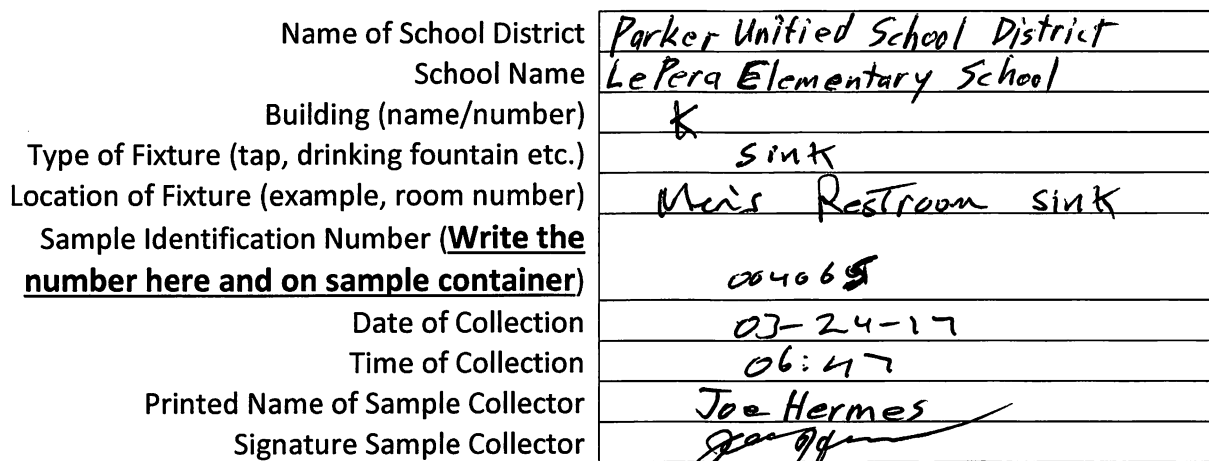 Name of School District Parker Unified School District
School Name Le Pera Elementary School
Building (name/number) K
Type of Fixture (tap, drinking fountain etc.) sink
Location of Fixture (example, room number) Men's Restroom sink
Sample Identification Number (Write the
number here and on sample container) 004065
Date of Collection 03-24-17
Time of Collection 06:47
Printed Name of Sample Collector Joe Hermes
Signature Sample Collector